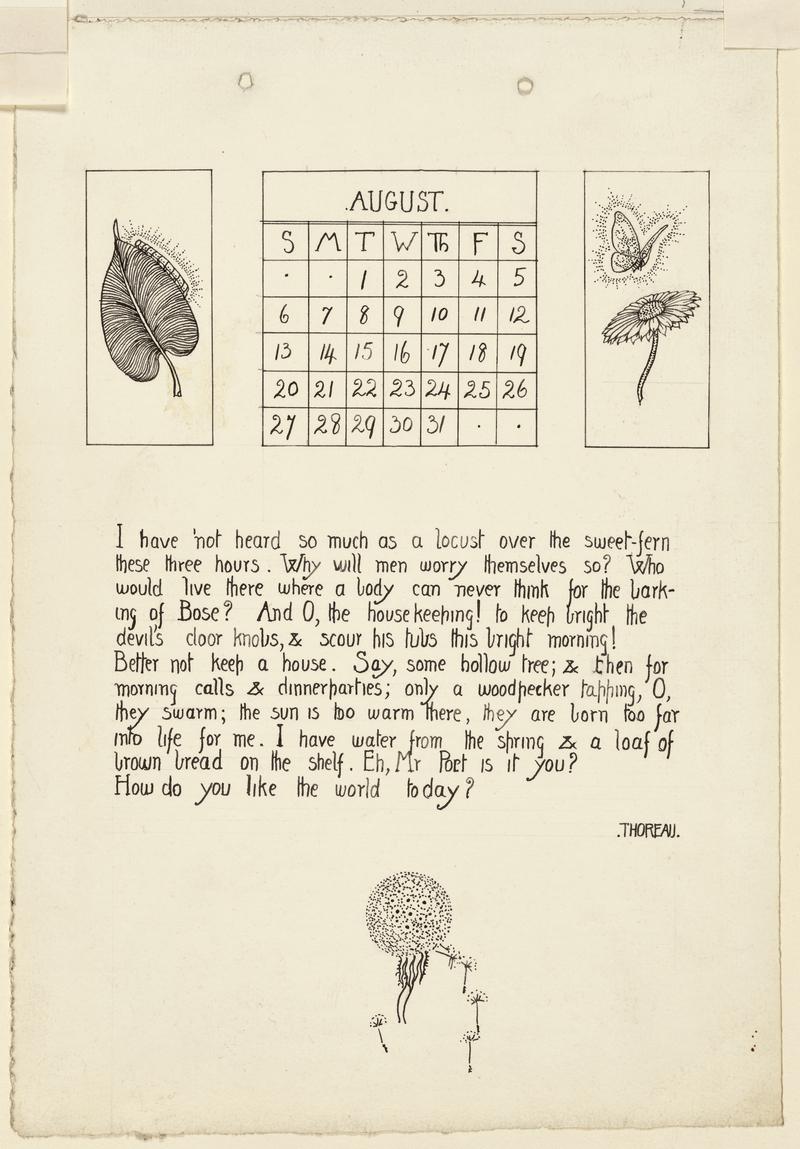 .AUGUST.
S M T W Th F S
. . 1 2 3 4 5
6 7 8 9 10 11 12
13 14 15 16 17 18 19
20 21 22 23 24 25 26
27 28 29 30 31 . .
I have not heard so much as a locust over the sweet-fern
these three hours. Why will men worry themselves so? Who
would live there where a body can never think for the bark-
ing of Bose? And O, the housekeeping! to keep bright the
devil's door knobs, & scour his tubs this bright morning!
Better not keep a house. Say, some hollow tree; & then for
morning calls & dinnerparties; only a woodpecker tapping, O,
they swarm; the sun is too warm there, they are born too far
into life for me. I have water from the spring & a loaf of
brown bread on the shelf. Eh, Mr Poet is it you?
How do you like the world today?
.THOREAU.